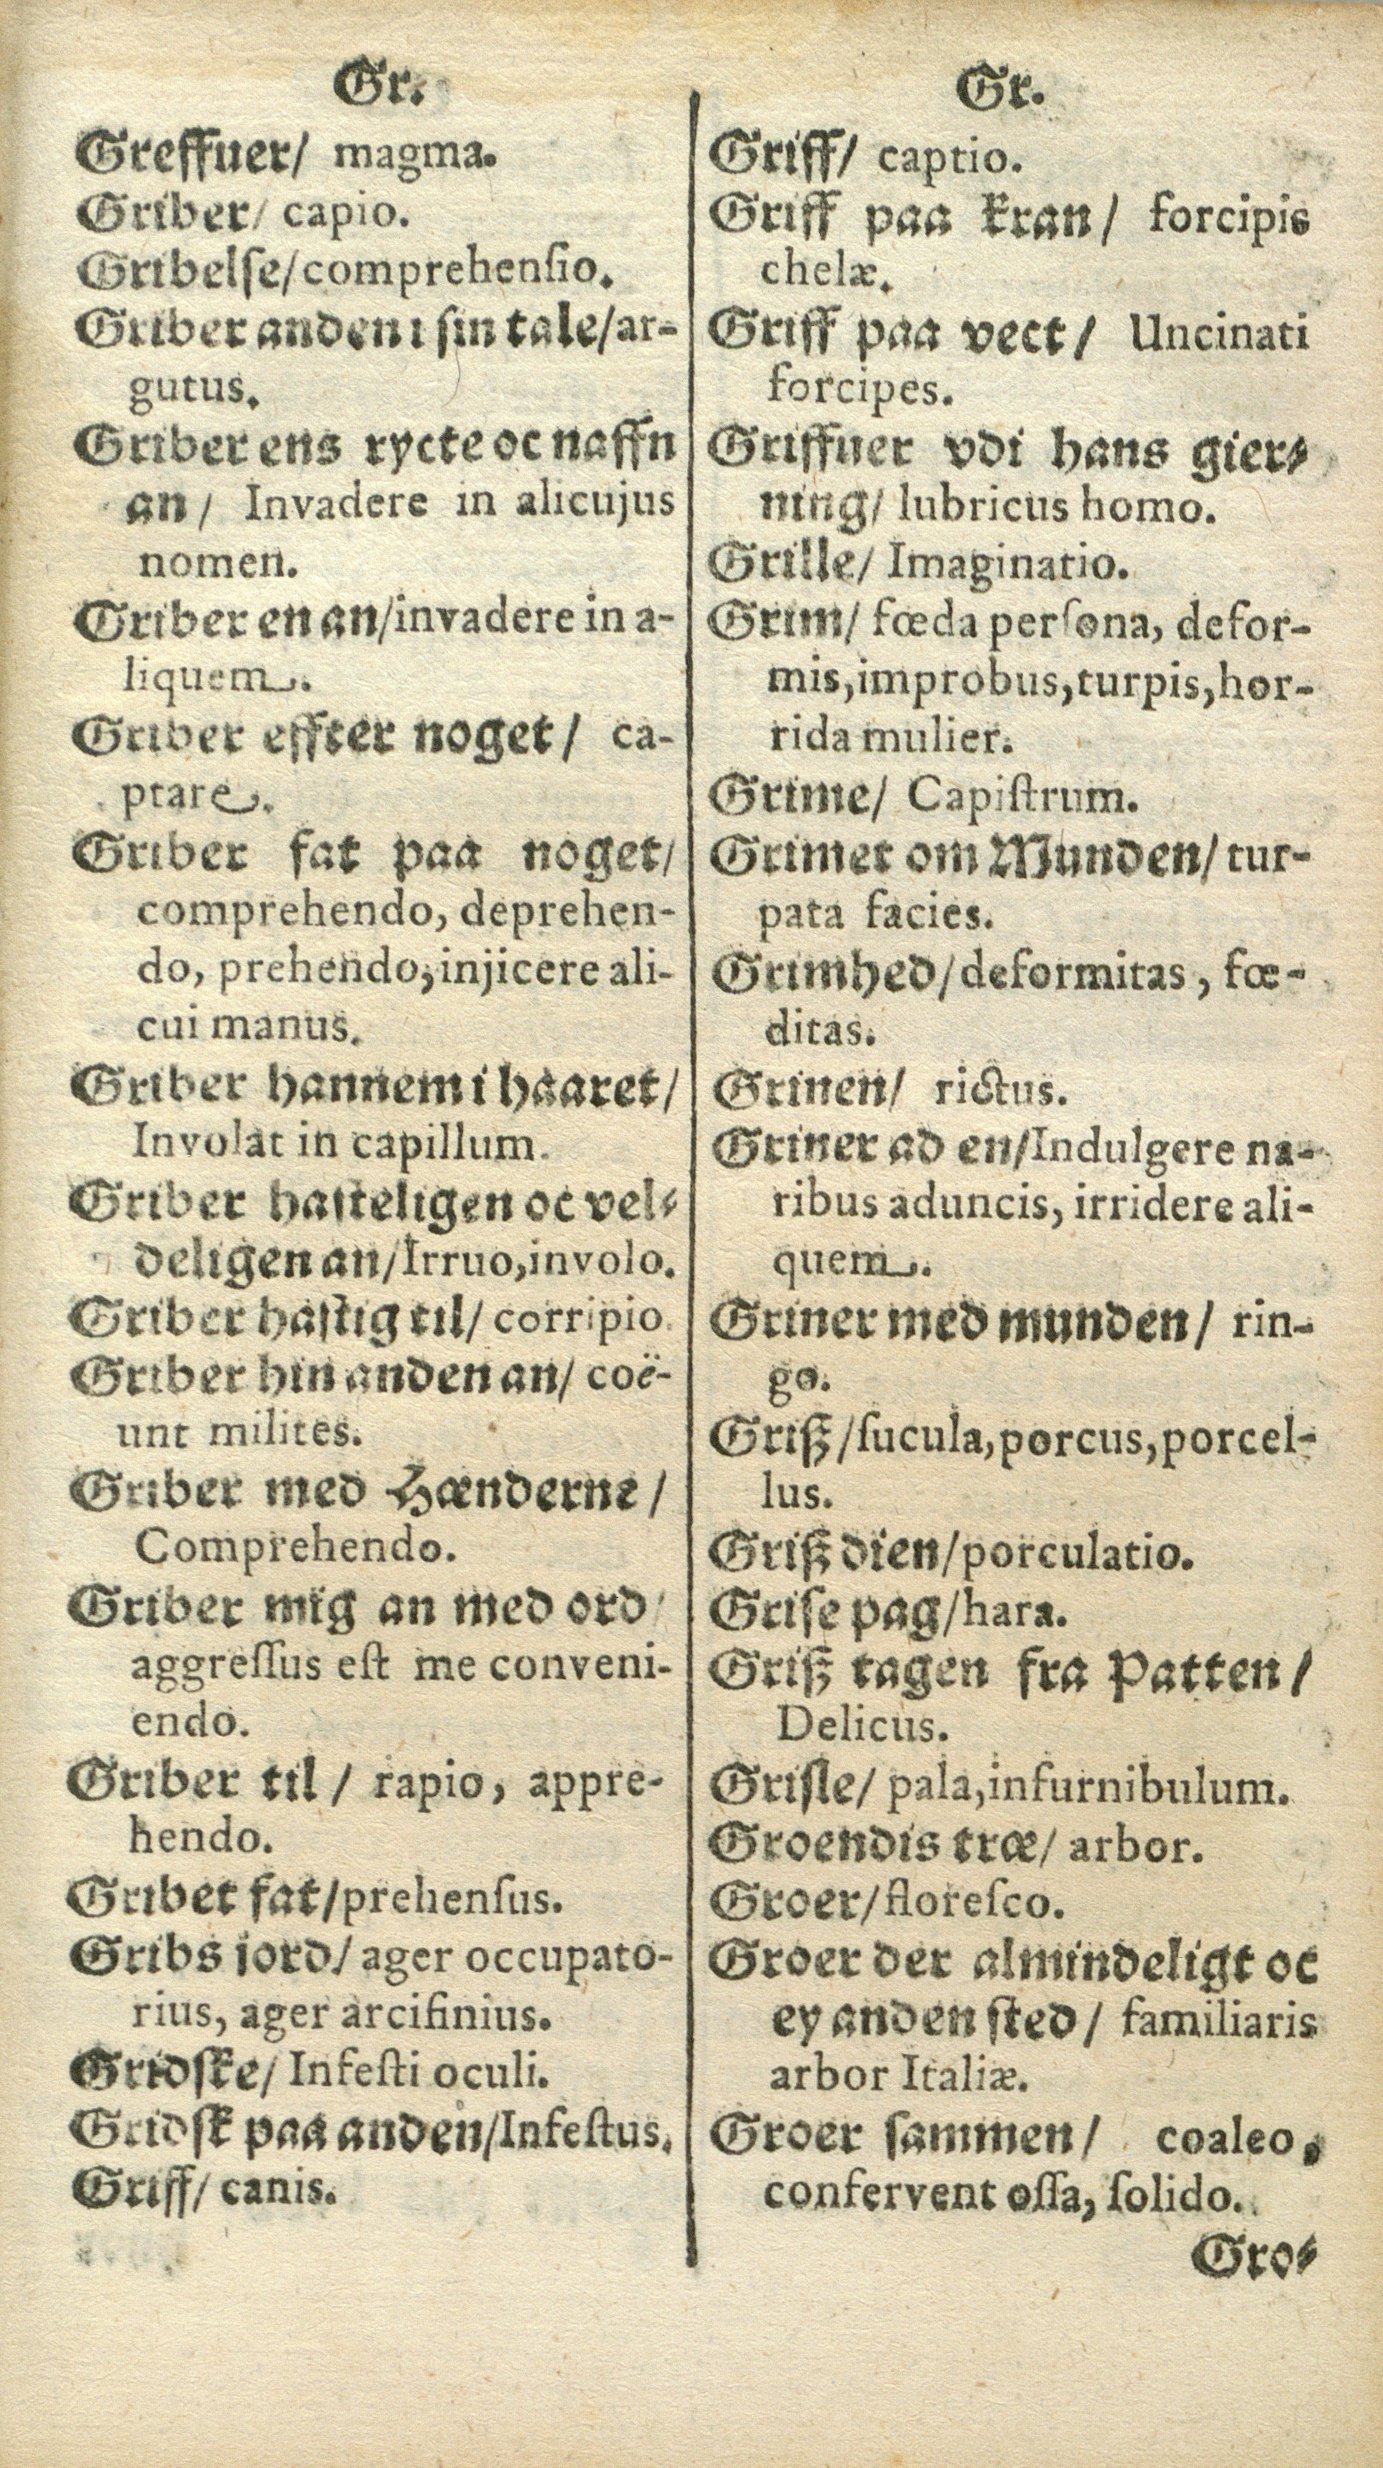 Gr.
Greffuer/ magma.
Griber/ capio.
Gribelſe/comprehenſio.
Griber anden i ſin tale/ar-
gutus.
Griber ens rycte oc naffn
an/ Invadere in alicujus
nomen.
Griber en an/invadere in a-
liquem.
Griber effter noget/ ca-
ptare.
Griber fat paa noget/
comprehendo, deprehen-
do, prehendo, injicere ali-
cui manus.
Griber hannem i haaret/
Involat in capillum.
Griber haſteligen oc vel-
deligen an/Irruo,involo.
Griber haſtig til/ corripio.
Griber hin anden an/ coë-
unt milites.
Griber med Hænderne/
Comprehendo.
Griber mig an med ord/
aggreſſus eſt me conveni-
endo.
Griber til/ rapio, appre-
hendo.
Gribet fat/prehenſus.
Gribs jord/ ager occupato-
rius, ager arcifinius.
Gridſke/ Infeſti oculi.
Gridſk paa anden/Infeſtus.
Griff/ canis.
Gr.
Griff/ captio.
Griff paa kran/ forcipis
chelæ.
Griff paa vect/ Uncinati
forcipes.
Griffuer vdi hans gier-
ning/ lubricus homo.
Grille/ Imaginatio.
Grim/ fœda perſona, defor-
mis,improbus,turpis,hor-
rida mulier.
Grime/ Capiſtrum.
Grimet om Munden/ tur-
pata facies.
Grimhed/deformitas, fœ-
ditas.
Grinen/ rictus.
Griner ad en/Indulgere na-
ribus aduncis, irridere ali-
quem.
Griner med munden/ rin-
go.
Griſz/ſucula,porcus,porcel-
lus.
Griſz dien/porculatio.
Griſe pag/hara.
Griſz tagen fra Patten/
Delicus.
Griſle/ pala,infurnibulum.
Groendis træ/ arbor.
Groer/floreſco.
Groer der almindeligt oc
ey anden ſted/ familiaris
arbor Italiæ.
Groer ſammen/ coaleo,
confervent oſſa, ſolido.
Gro-